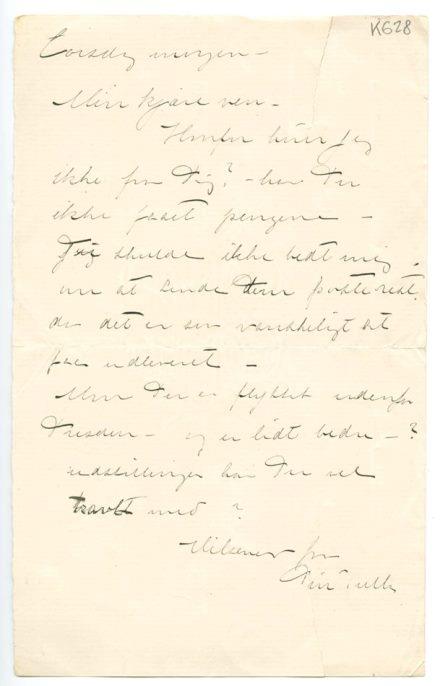 K628
Torsdag morgen –
Min kjære ven –
Hvorfor hører jeg
ikke fra Dig? – har Du
ikke faaet pengene –
skulde ikke bedt mig
om at sende dem poste rest.
da det er saa vanskeligt at
faa udleveret –
Men Du er flyttet udenfor
Dresden – og er lidt bedre – ?
udstillinger har Du vel
travlt med ?
Hilsener fra
Din Tulla